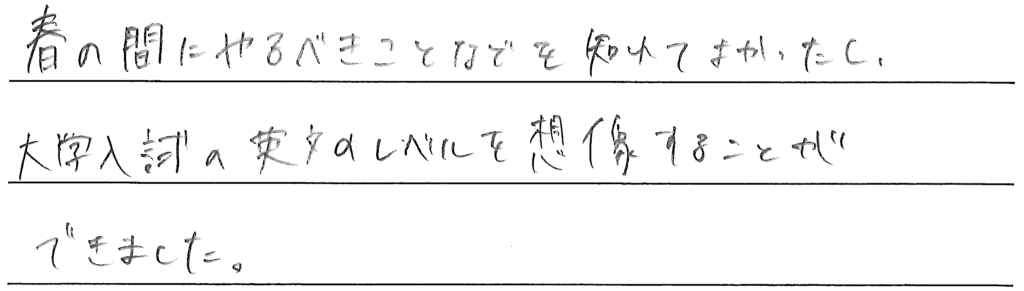 春の間にやるべきことなどを知れてよかったし、
大学入試の英文のレベルを想像することが
できました。